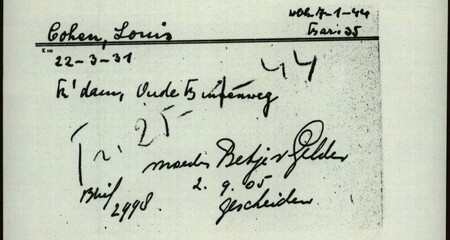 WBK 7-1-44
Cohen, Louis
Bar. 35
22-3-31
44
R'dam, Oude Binnenweg
Tr. 25
moeder Betje v Gelder
2. 9. 05
2998
gescheiden